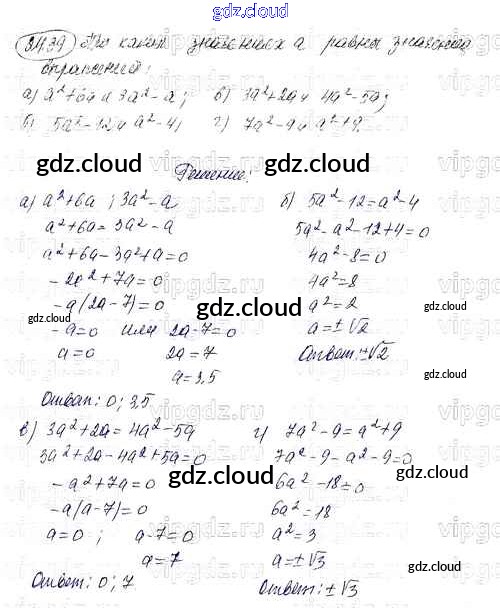 gdz.cloud
34.39 При каких значениях a равны значения
выражений:
а) a²+6a и 3a²-a; в) 3a²+2a и 4a²-5a;
б) 5a²-12 и a²-4; г) 7a²-9 и a²+9.
gdz.cloud
gdz.cloud
Решение:
а) a²+6a ; 3a²-a
a²+6a=3a²-a
a²+6a-3a²+a=0
-2a²+7a=0
-a(2a-7)=0
-a=0 или 2a-7=0
a=0 2a=7
a=3,5
Ответ: 0; 3,5
б) 5a²-12=a²-4
5a²-a²-12+4=0
4a²-8=0
4a²=8
a²=2
a=±√2
Ответ: ±√2
gdz.cloud
gdz.cloud
в) 3a²+2a=4a²-5a
3a²+2a-4a²+5a=0
-a²+7a=0
-a(a-7)=0
a=0; a-7=0
a=7
Ответ: 0; 7
г) 7a²-9=a²+9
7a²-9-a²-9=0
6a²-18=0
6a²=18
a²=3
a=±√3
Ответ: ±√3
gdz.cloud
gdz.cloud
gdz.cloud
gdz.cloud
vipgdz.ru